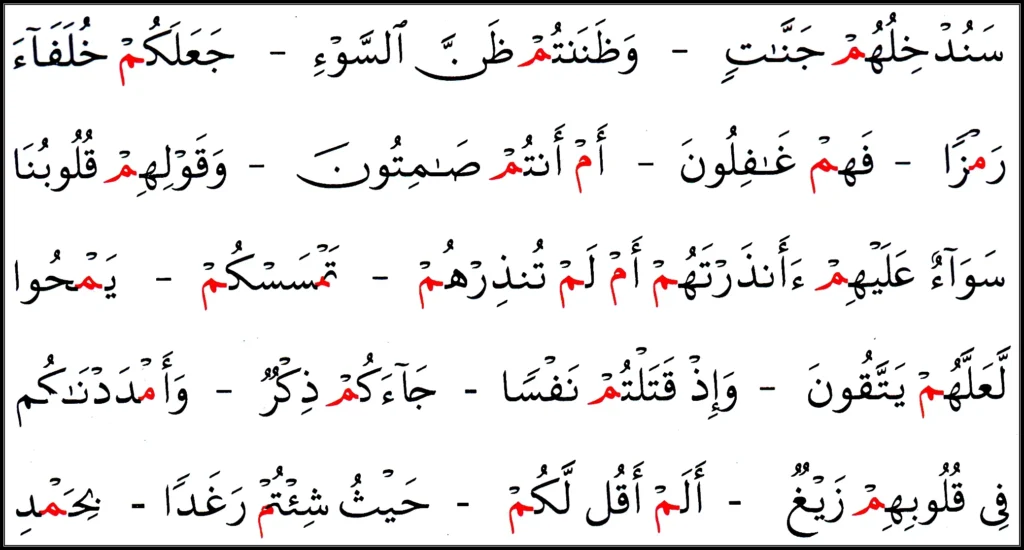 سَنُدْخِلُهُمْ جَنَّـٰتٍ - وَظَنَنتُمْ ظَنَّ ٱلسَّوْءِ - جَعَلَكُمْ خُلَفَآءَ
رَمْزًا - فَهُمْ غَـٰفِلُونَ - أَمْ أَنتُمْ صَـٰمِتُونَ - وَقَوْلِهِمْ قُلُوبُنَا
سَوَآءٌ عَلَيْهِمْ ءَأَنذَرْتَهُمْ أَمْ لَمْ تُنذِرْهُمْ - تَمْسَسْكُمْ - يَمْحُوا
لَّعَلَّهُمْ يَتَّقُونَ - وَإِذْ قَتَلْتُمْ نَفْسًا - جَآءَكُمْ ذِكْرٌ - وَأَمْدَدْنَـٰكُم
فِى قُلُوبِهِمْ زَيْغٌ - أَلَمْ أَقُل لَّكُمْ - حَيْثُ شِئْتُمْ رَغَدًا - بِحَمْدِ